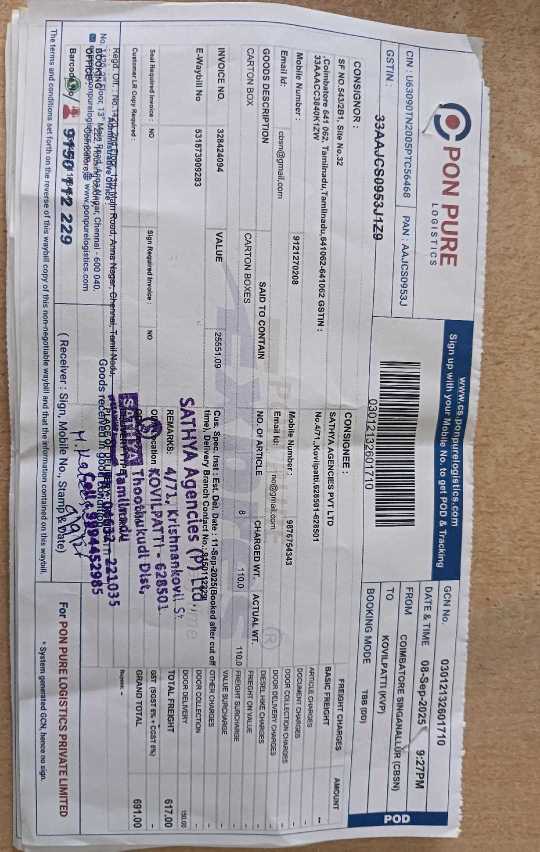 PON PURE
LOGISTICS
www.cs.ponpurelogistics.com
Sign up with your Mobile No. to get POD & Tracking
CIN : U63090TN2005PTC56468
PAN : AAJCS0953J
GSTIN :
33AAJCS0953J1Z9
03012132601710
GCN No.
03012132601710
DATE & TIME
08-Sep-2025
9:27PM
FROM
COIMBATORE SINGANALLUR (CBSN)
TO
KOVILPATTI (KVP)
BOOKING MODE
TBB
POD
CONSIGNOR :
SF NO.543/2B1, Site No.32
,Coimbatore 641 062, Tamilnadu,Tamilnadu,641062-641062 GSTIN :
33AAACC3840K1ZW
Mobile Number :
9121270208
Email Id:
cbsn@gmail.com
CONSIGNEE :
SATHYA AGENCIES PVT LTD
No.4/71,Kovilpatti,628501-628501
Mobile Number :
9876754343
Email Id:
no@gmail.com
FREIGHT CHARGES
AMOUNT
BASIC FREIGHT
--
ARTICLE CHARGES
DOCUMENT CHARGES
DOOR COLLECTION CHARGES
DOOR DELIVERY CHARGES
DIESEL HIKE CHARGES
FREIGHT ON VALUE
FREIGHT SURCHARGE
VALUE SURCHARGE
OTHER CHARGES
DOOR COLLECTION
DOOR DELIVERY
150.00
TOTAL FREIGHT
617.00
GST (SGST 6% + CGST 6%)
GRAND TOTAL
691.00
Rupees :
GOODS DESCRIPTION
SAID TO CONTAIN
NO. OF ARTICLE
CHARGED WT.
ACTUAL WT.
CARTON BOX
CARTON BOXES
8
110.0
110.0
INVOICE NO.
328424094
VALUE
25551.09
E-Waybill No
531873909283
Cus. Spec. Inst : Est. Del. Date : 11-Sep-2025(Booked after cut off
time), Delivery Branch Contact No.:
REMARKS:
SATHYA Agencies (P) Ltd.,
4/71, Krishnankovil St
KOVILPATTI - 628501.
Thoothukudi Dist,
Tamilnadu
221035
Cell : 9994452985
Customer LR Copy Required :
Seal Required Invoice :
NO
Sign Required Invoice :
NO
Chennai - 600 040.
www.ponpurelogistics.com
9150 112 229
(Receiver : Sign, Mobile No., Stamp & Date)
For PON PURE LOGISTICS PRIVATE LIMITED
The terms and conditions set forth on the reverse of this waybill copy of this non-negotiable waybill and that the information contained on this waybill.
* System generated GCN, hence no sign.